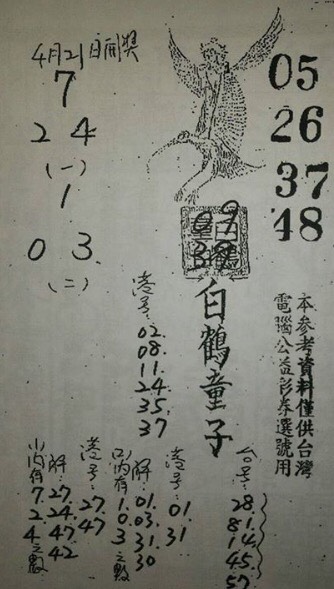 4月21日開獎
7
2 4
(一)
1
0 3
(二)
05
26
37
48
09
38
白鶴童子
本参考資料僅供台灣
電腦公益彩券選號用
港号:
02.
08.
11.
24
35.
37
台号:
28.
81.
14.
45.
57.
港号:
01.
31
解:
01.
03.
31.
30
口內有
1.
0.
3之數
港号:
27.
47
解:
27.
24.
47
42
7.
2.
4之數